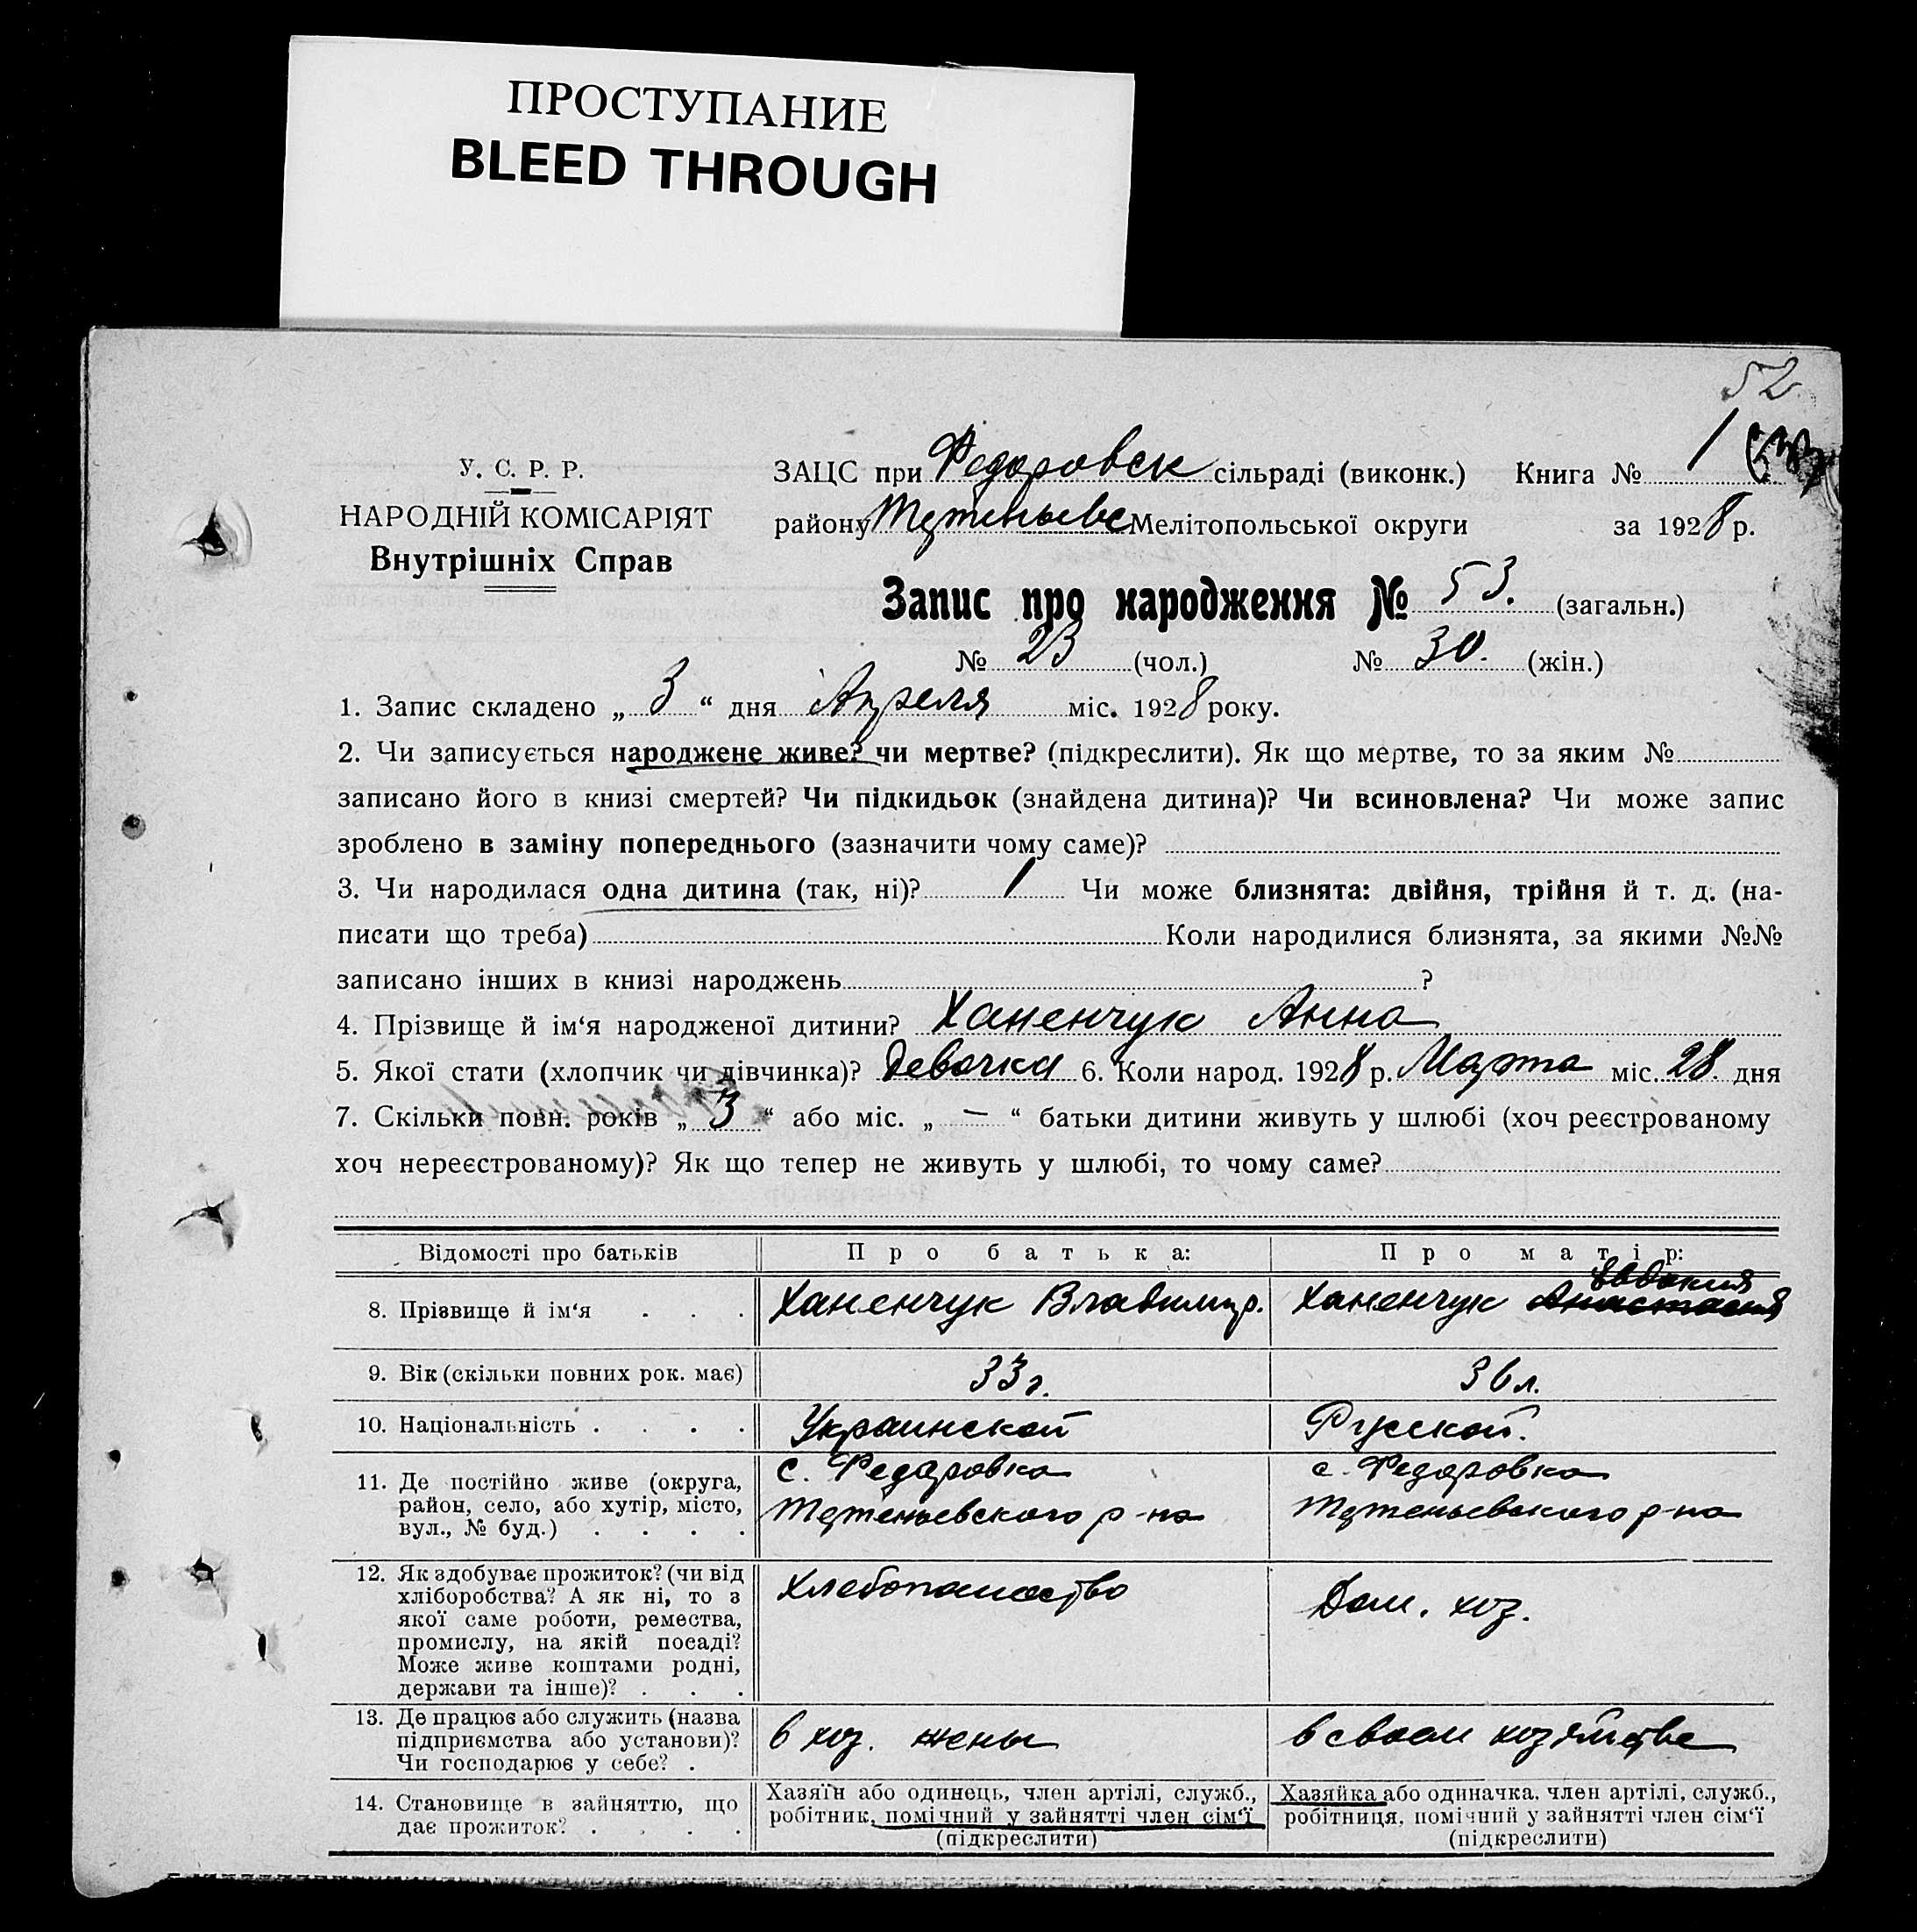 ПРОСТУПАНИЕ
BLEED THROUGH
52
У. С. Р. Р.
НАРОДНІЙ КОМІСАРІЯТ
Внутрішніх Справ
ЗАЦС при Федоровск сільраді (виконк.) Книга № 1
району Мелітопольської округи за 1928 р.
Запис про народження № 53. (загальн.)
№ 23 (чол.) № 30. (жін.)
1. Запис складено „ 3 “ дня Апреля міс. 1928 року.
2. Чи записується народжене живе? чи мертве? (підкреслити). Як що мертве, то за яким №
записано його в книзі смертей? Чи підкидьок (знайдена дитина)? Чи всиновлена? Чи може запис
зроблено в заміну попереднього (зазначити чому саме)?
3. Чи народилася одна дитина (так, ні)? 1 Чи може близнята: двійня, трійня й т. д. (на-
писати що треба) Коли народилися близнята, за якими №№
записано інших в книзі народжень ?
4. Прізвище й ім‘я народженої дитини? Ханенчук Анна
5. Якої стати (хлопчик чи дівчинка)? Девочка 6. Коли народ. 1928 р. Марта міс. 28. дня
7. Скільки повн. років „ 3 “ або міс. „ — “ батьки дитини живуть у шлюбі (хоч реєстрованому
хоч нереєстрованому)? Як що тепер не живуть у шлюбі, то чому саме?
Відомості про батьків
Про батька:
Про матір:
8. Прізвище й ім‘я . . .
Ханенчук Владимир.
Евдокия
Ханенчук Анастасия
9. Вік (скільки повних рок. має)
33 г.
36 л.
10. Національність . . . .
Украинской
Русской.
11. Де постійно живе (округа,
район, село, або хутір, місто,
вул., № буд.) . . . .
с. Федоровка
р-на
с. Федоровка
р-на
12. Як здобуває прожиток? (чи від
хліборобства? А як ні, то з
якої саме роботи, ремества,
промислу, на якій посаді?
Може живе коштами родні,
держави та інше)? . . .
Хлебопашество
Дом. хоз.
13. Де працює або служить (назва
підприємства або установи)?
Чи господарює у себе? .
в хоз. жены
в своем хозяйстве
14. Становище в зайняттю, що
дає прожиток? . . . .
Хазяїн або одинець, член артілі, служб.,
робітник, помічний у зайнятті член сім‘ї
(підкреслити)
Хазяйка або одиначка, член артілі, служб.,
робітниця, помічний у зайнятті член сім‘ї
(підкреслити)